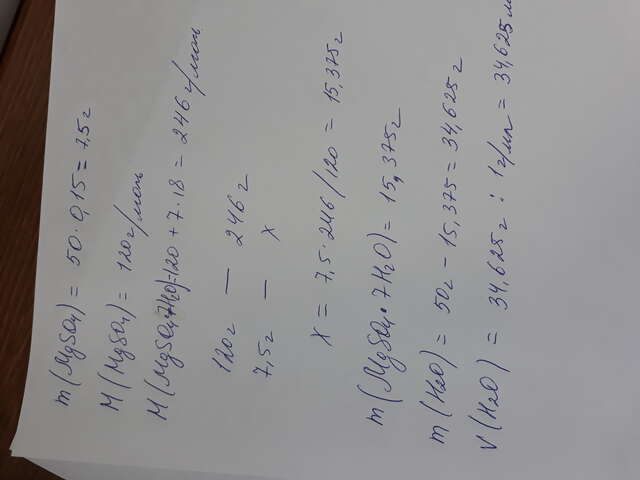 m(MgSO4) = 50·0,15 = 7,5г
M(MgSO4) = 120г/моль
M(MgSO4·7H2O)=120 + 7·18 = 246г/моль
120г — 246г
7,5г — x
x = 7,5·246/120 = 15,375г
m(MgSO4·7H2O) = 15,375г
m(H2O) = 50г - 15,375 = 34,625г
V(H2O) = 34,625г : 1г/мл = 34,625 м